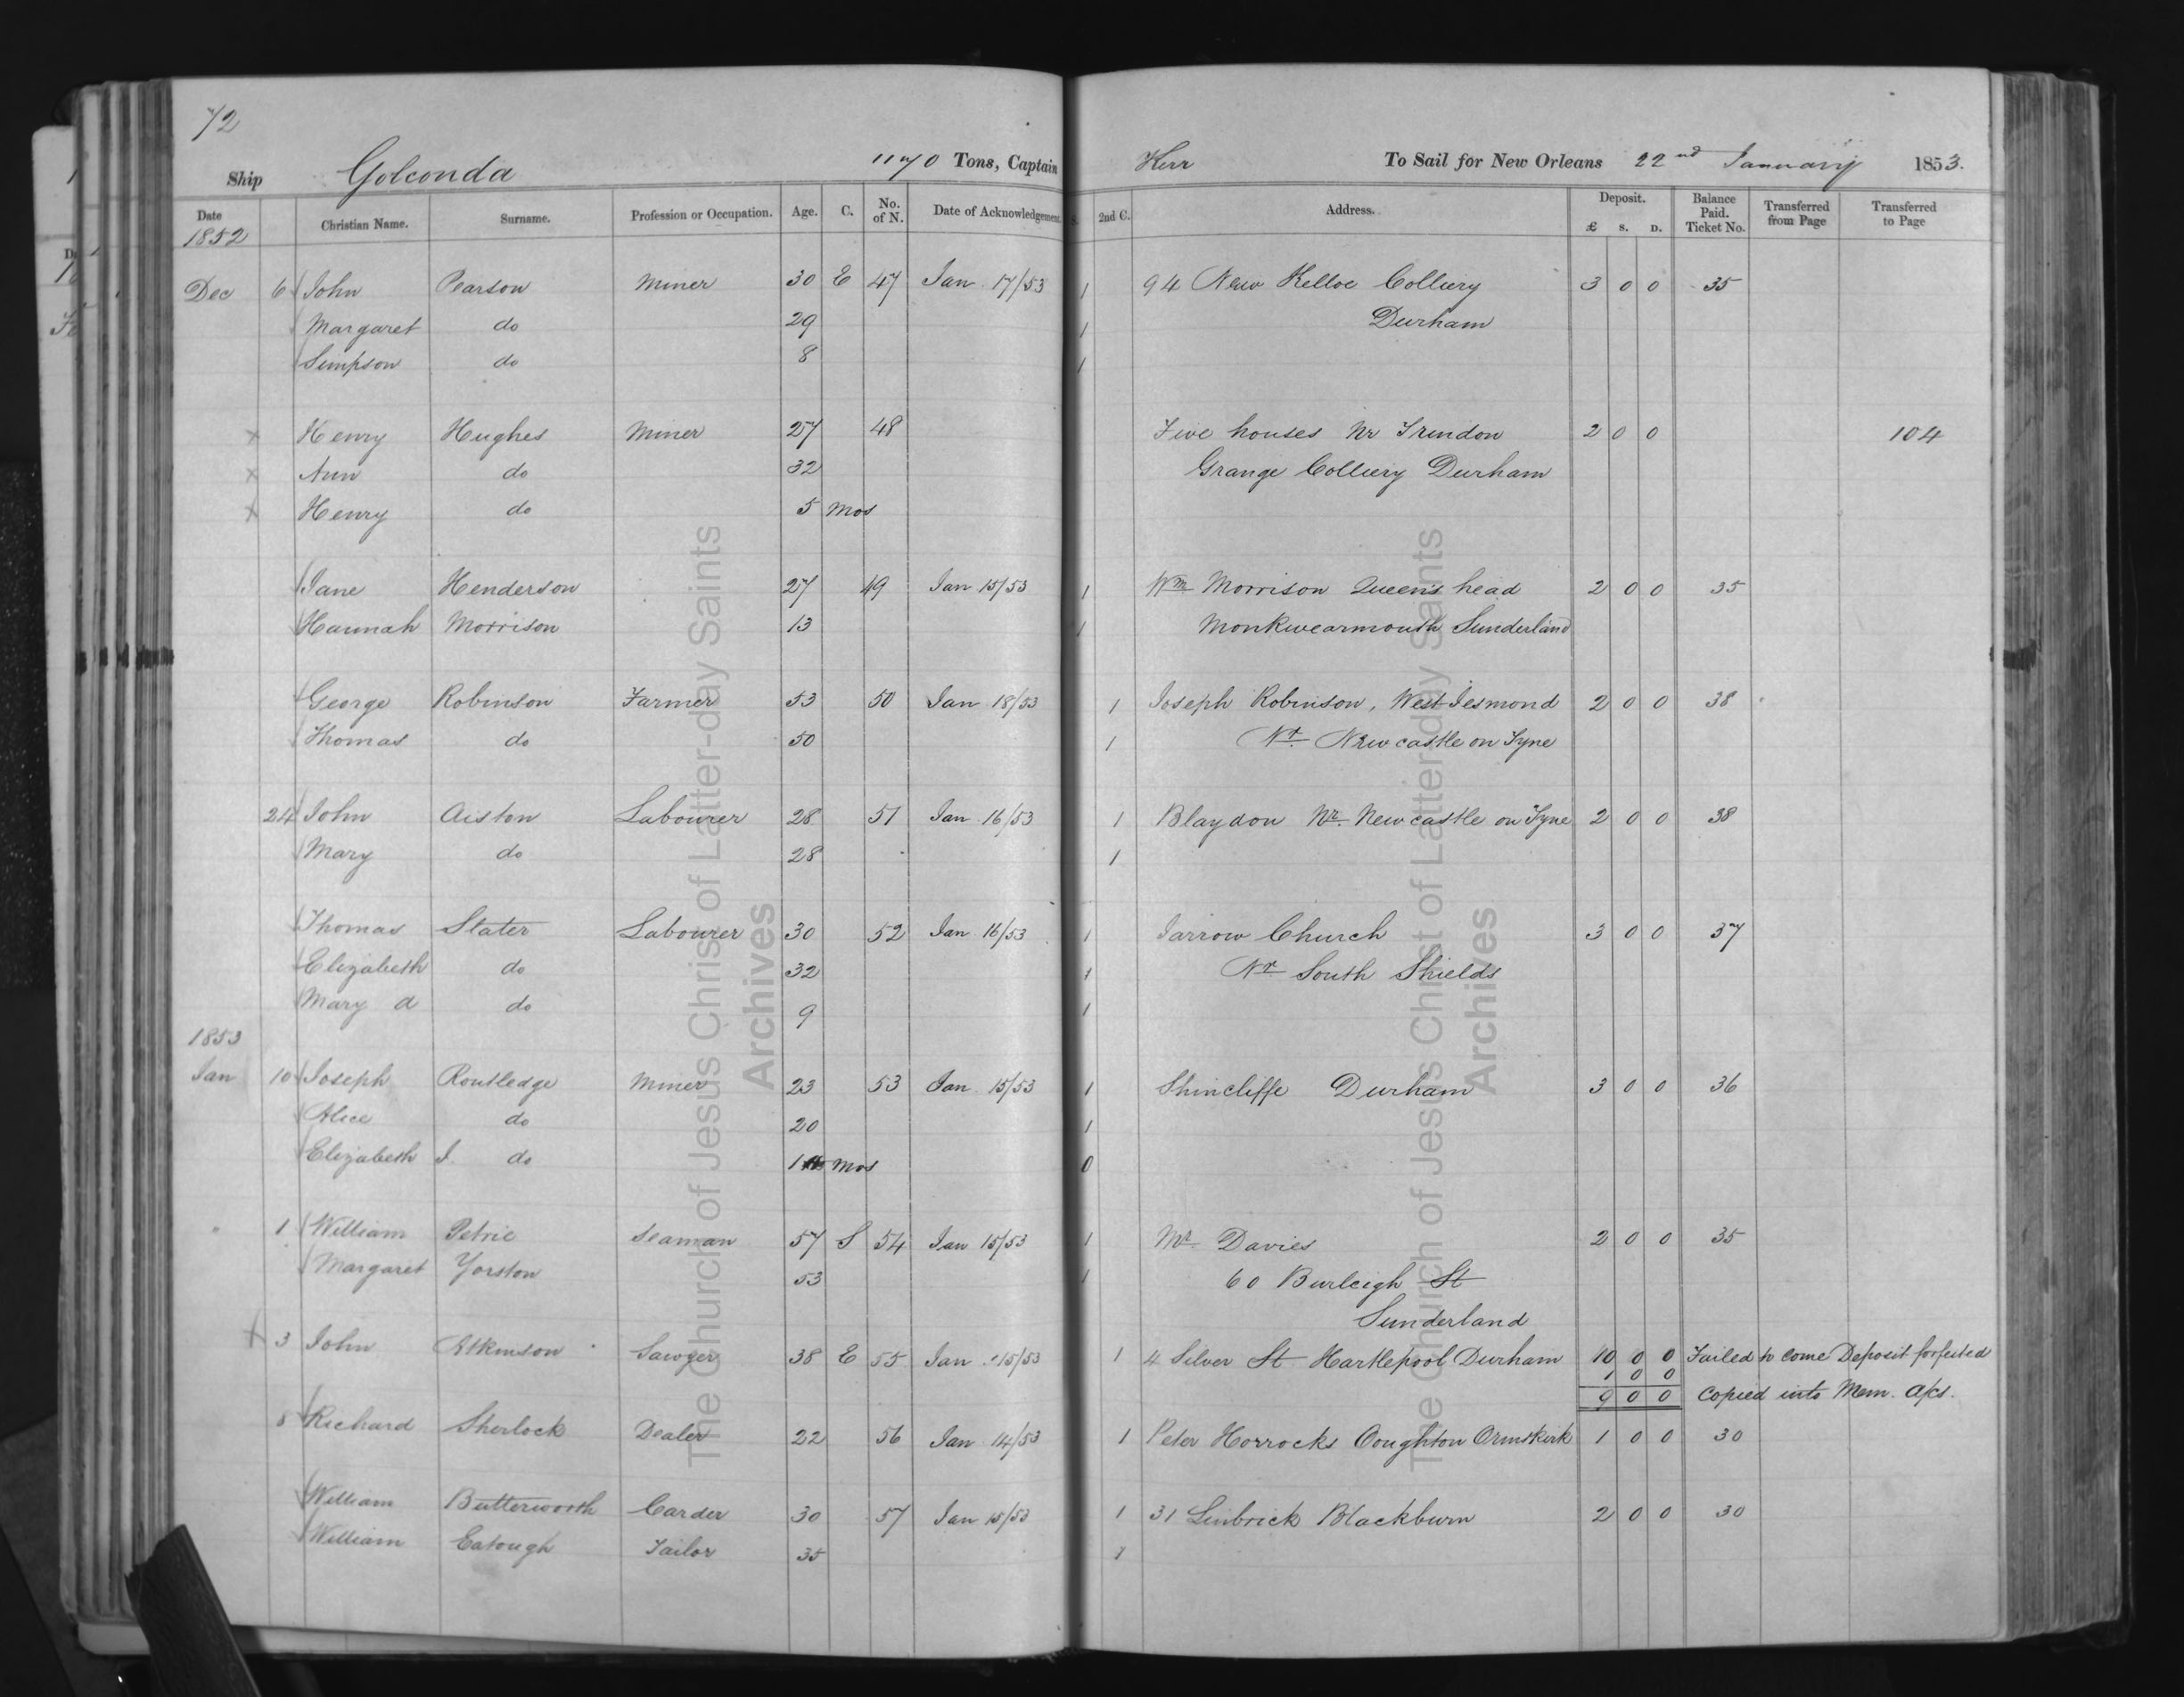 72
Ship Golconda 1170 Tons, Captain Kerr To Sail for New Orleans 22nd January 1853.
Date Christian Name. Surname. Profession or Occupation. Age. C. No. of N. Date of Acknowledgement. S. 2nd C. Address. Deposit. £ S. D. Balance Paid. Ticket No. Transferred from Page Transferred to Page
1852
Dec 6 John Pearson Miner 30 E 47 Jan 17/53 1 94 New Kelloe Colliery 3 0 0 35
Margaret do 29 1 Durham
Simpson do 8 1
x Henry Hughes Miner 27 48 Five houses Nr Trindon 2 0 0 104
x Ann do 32 Grange Colliery Durham
x Henry do 5 Mos
Jane Henderson 27 49 Jan 15/53 1 Wm Morrison Queens head 2 0 0 35
Hannah Morrison 13 1 Monkwearmouth Sunderland
George Robinson Farmer 53 50 Jan 18/53 1 Joseph Robinson, West Jesmond 2 0 0 38
Thomas do 50 1 Nr. Newcastle on Tyne
24 John Aiston Labourer 28 51 Jan 16/53 1 Blaydon Nr. Newcastle on Tyne 2 0 0 38
Mary do 28 1
Thomas Slater Labourer 30 52 Jan 16/53 1 Jarrow Church 3 0 0 37
Elizabeth do 32 1 Nr South Shields
Mary A do 9 1
1853
Jan 10 Joseph Routledge Miner 23 53 Jan 15/53 1 Shincliffe Durham 3 0 0 36
Alice do 20 1
Elizabeth J. do mos 0
" 1 William Petrie Seaman 57 S 54 Jan 15/53 1 Mr. Davies 2 0 0 35
Margaret Yorston 53 1 60 Burleigh St
Sunderland
x 3 John Atkinson Sawyer 38 E 55 Jan 15/53 1 4 Silver St Hartlepool Durham 10 0 0 Failed to come Deposit forfeited
1 0 0
9 0 0 Copied into Mem. A/cs.
8 Richard Sherlock Dealer 22 56 Jan 14/53 1 Peter Horrocks Ormskirk 1 0 0 30
William Butterworth Carder 30 57 Jan 15/53 1 31 Linbrick Blackburn 2 0 0 30
William Eatough Tailor 35 1
The Church of Jesus Christ of Latter-day Saints
Archives
The Church of Jesus Christ of Latter-day Saints
Archives